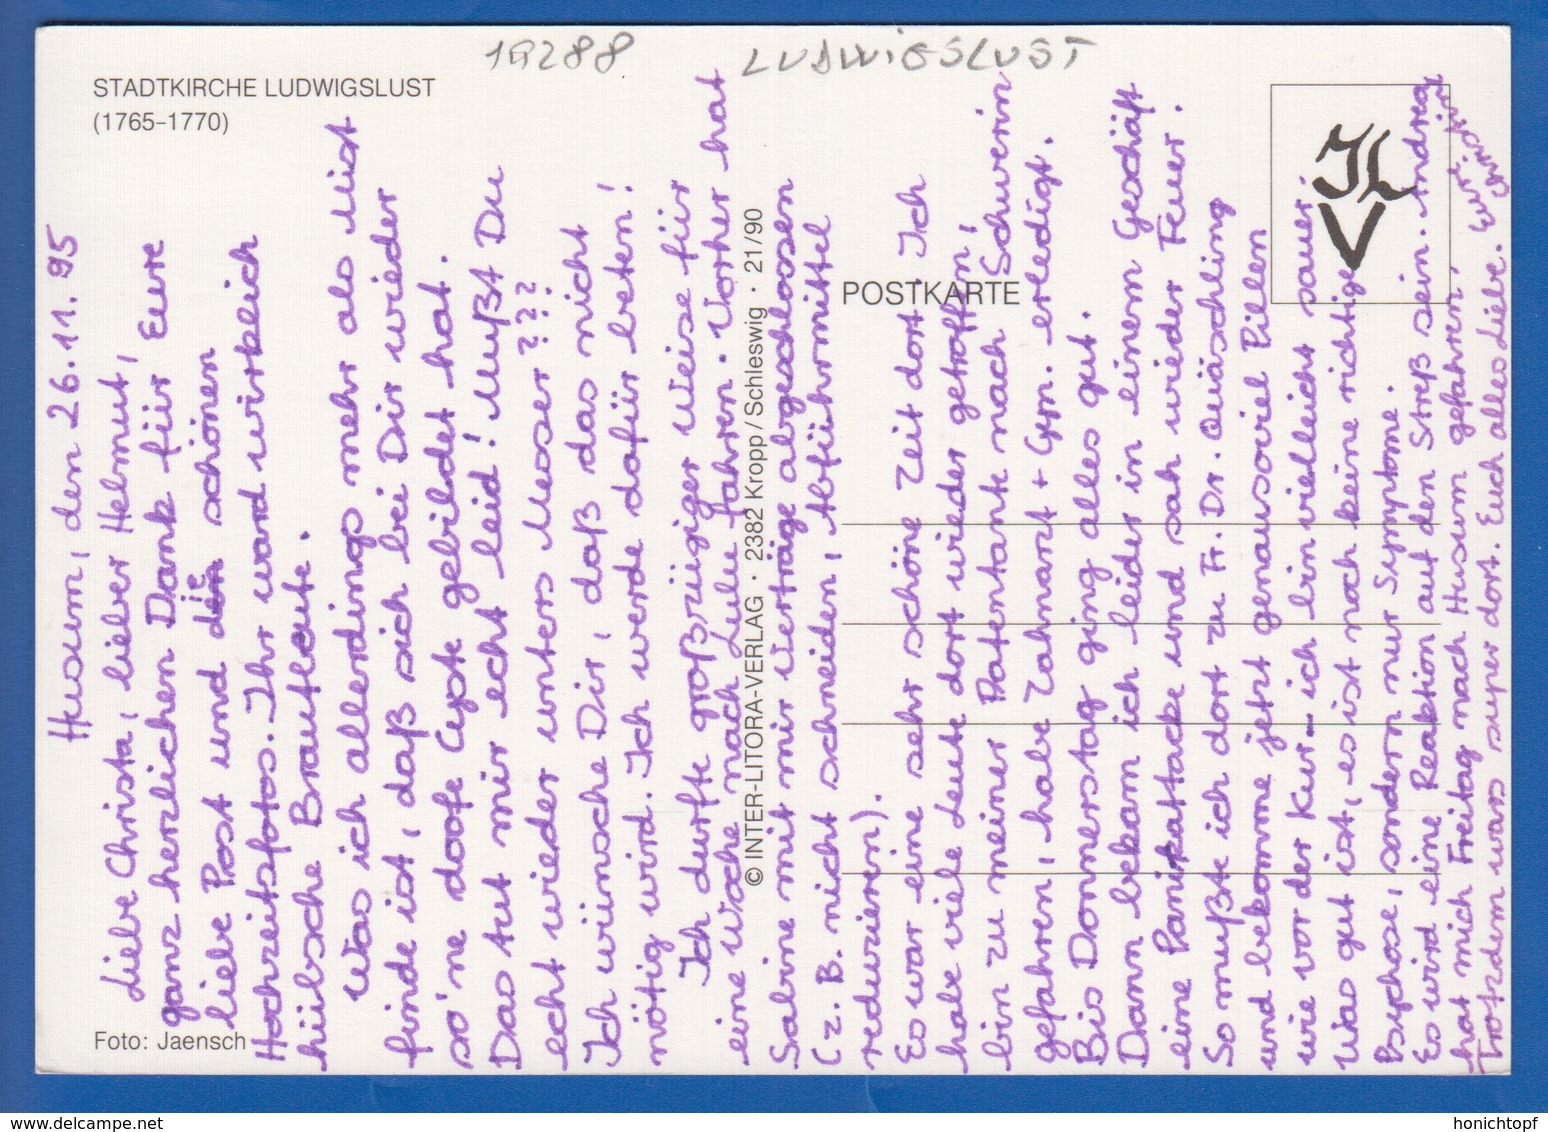 19288 LUDWIGSLUST
STADTKIRCHE LUDWIGSLUST
(1765-1770)
Husum, den 26.11.95
Liebe Christa, lieber Helmut,
ganz herzlichen Dank für Eure
liebe Post und die schönen
Hochzeitsfotos. Ihr ward wirklich
hübsche Brautleute.
Was ich allerdings mehr als Mist
finde ist, daß sich bei Dir wieder
so'ne doofe Cyste gebildet hat.
Das tut mir echt leid! Mußt Du
echt wieder unters Messer???
Ich wünsche Dir, daß das nicht
nötig wird. Ich werde dafür beten!
Ich durfte großzügiger Weise für
eine Woche nach Lulu fahren. Vorher hat
Sabine mit mir Verträge abgeschlossen
(z.B. nicht schneiden, Abführmittel
reduzieren).
Es war eine sehr schöne Zeit dort. Ich
habe viele Leute dort wieder getroffen,
bin zu meiner Patentante nach Schwerin
gefahren, habe Zahnarzt + Gyn. erledigt.
Bis Donnerstag ging alles gut.
Dann bekam ich leider in einem Geschäft
eine Panikattacke und sah wieder Feuer.
So mußte ich dort zu Fr. Dr. Quäschling
und bekomme jetzt genausoviel Pillen
wie vor der Kur – ich bin vielleicht sauer.
Was gut ist, es ist noch keine richtige
Psychose, sondern nur Symptome.
Es wird eine Reaktion auf den Streß sein. Andrea
hat mich Freitag nach Husum gefahren.
Trotzdem wars super dort. Euch alles Liebe.
© INTER-LITORA-VERLAG · 2382 Kropp/Schleswig · 21/90
POSTKARTE
JLV
Foto: Jaensch
delcampe.net
honichtopf